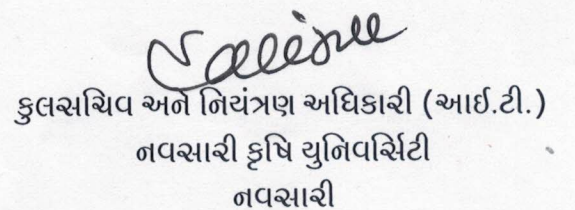 કુલસચિવ અને નિયંત્રણ અધિકારી (આઈ.ટી.)
નવસારી કૃષિ યુનિવર્સિટી
નવસારી